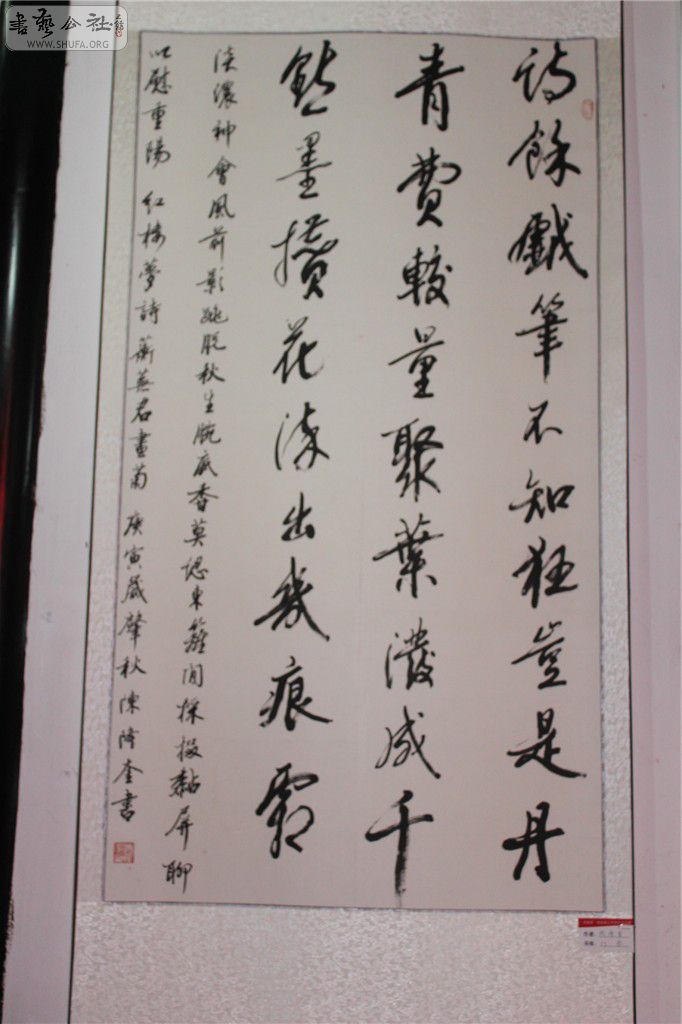 詩餘戲筆不知狂豈是丹
青費較量聚葉潑成千
點墨攢花染出幾痕霜
淡濃神會風前影跳脫秋生腕底香莫認東籬閒採掇黏屏聊
以慰重陽 紅樓夢詩蘅蕪君畫菊 庚寅歲肇秋陳隆奎書
書藝公社
WWW.SHUFA.ORG